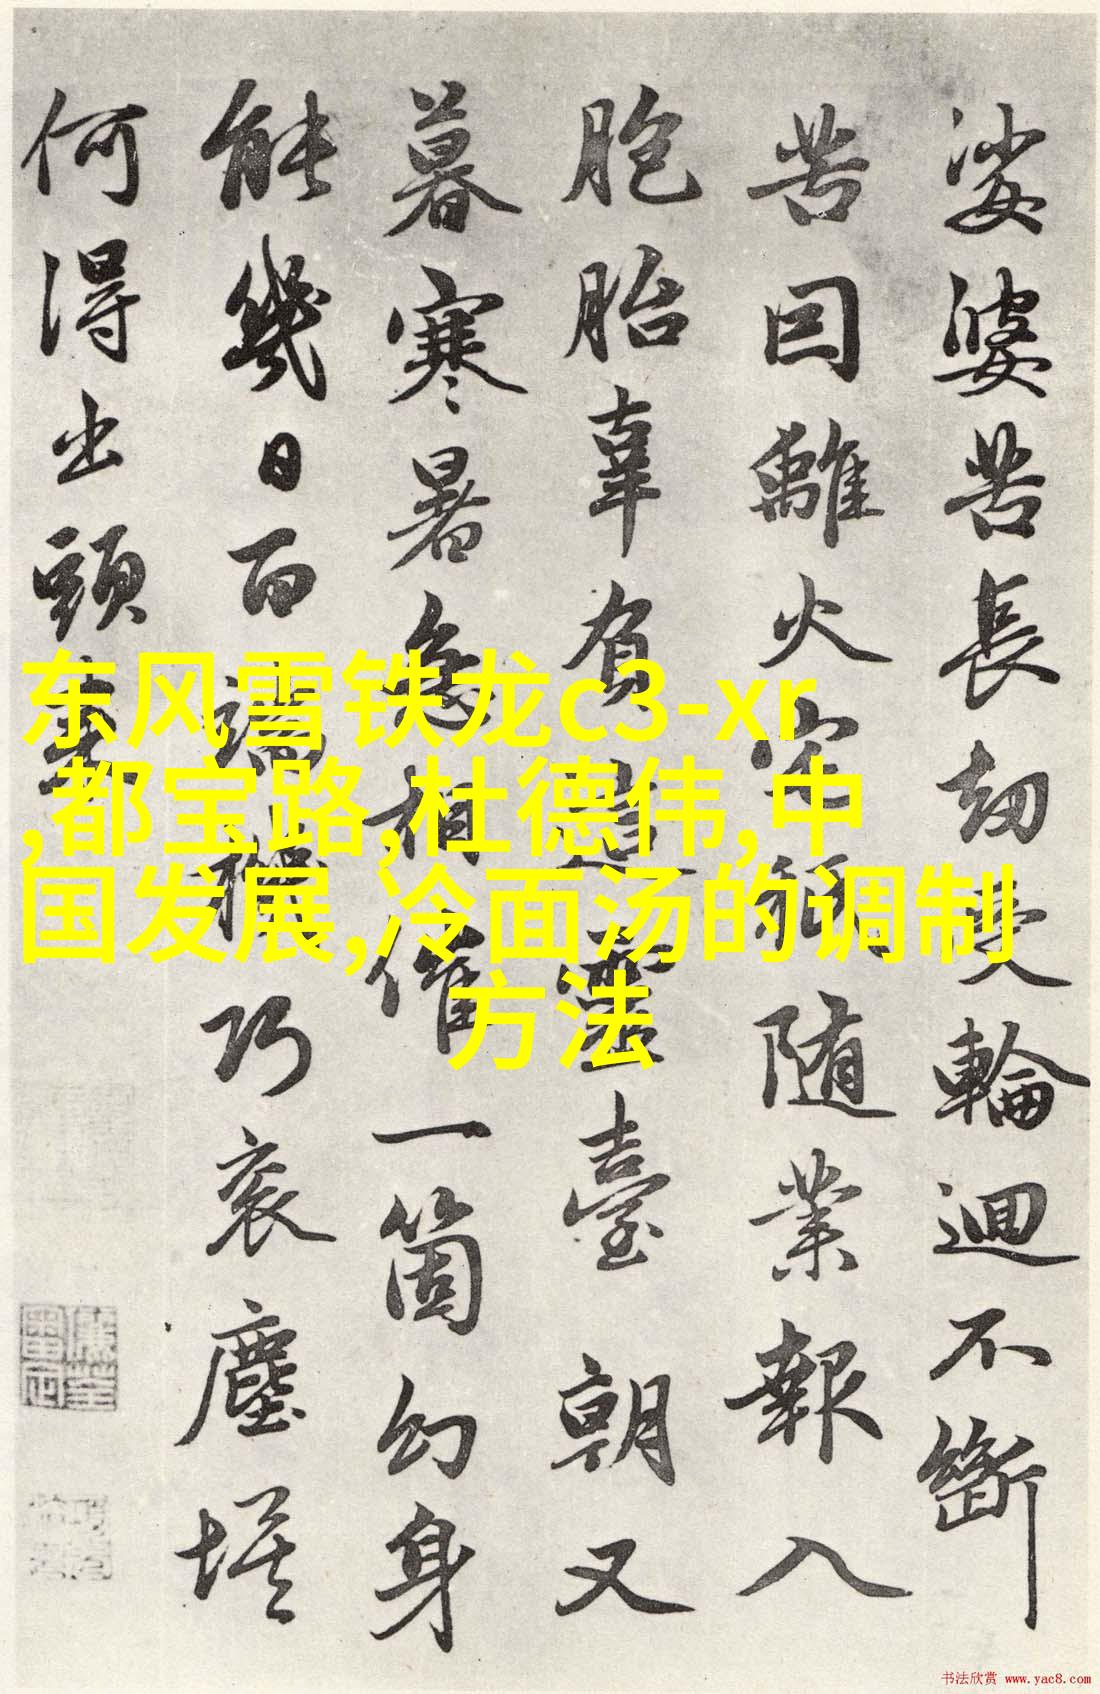 娑婆苦長劫受輪迴不斷
苦因離火宅貂随業報入
胞胎辜負這靈臺朝又
暮寒暑急相催一箇幻身
能幾日百端機巧衮塵埃
何得出頭来
东风雪铁龙c3-xr
,都宝路,杜德伟,中
国发展,冷面汤的调制
方法
书法欣赏 www.yac8.com